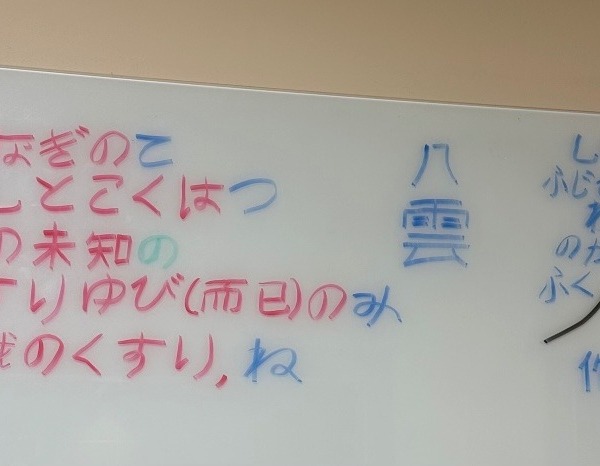 ぎのこ
とこくはつ
の未知の
りゆび(而已)のみ
のくすり,ね
八雲
し
ふじ
の
ふく
作